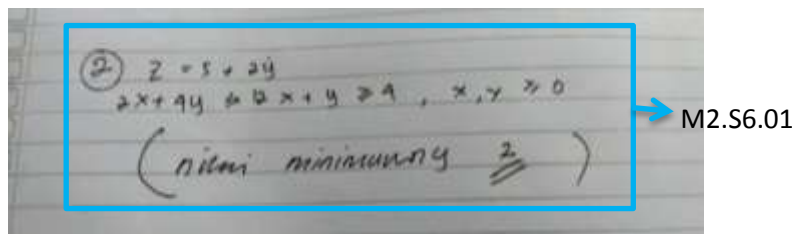 ② z = 5 + 2y
2x + 4y ≤ 12 x + y ≥ 4 , x, y ≥ 0
(nilai minimumny 2)
M2.S6.01